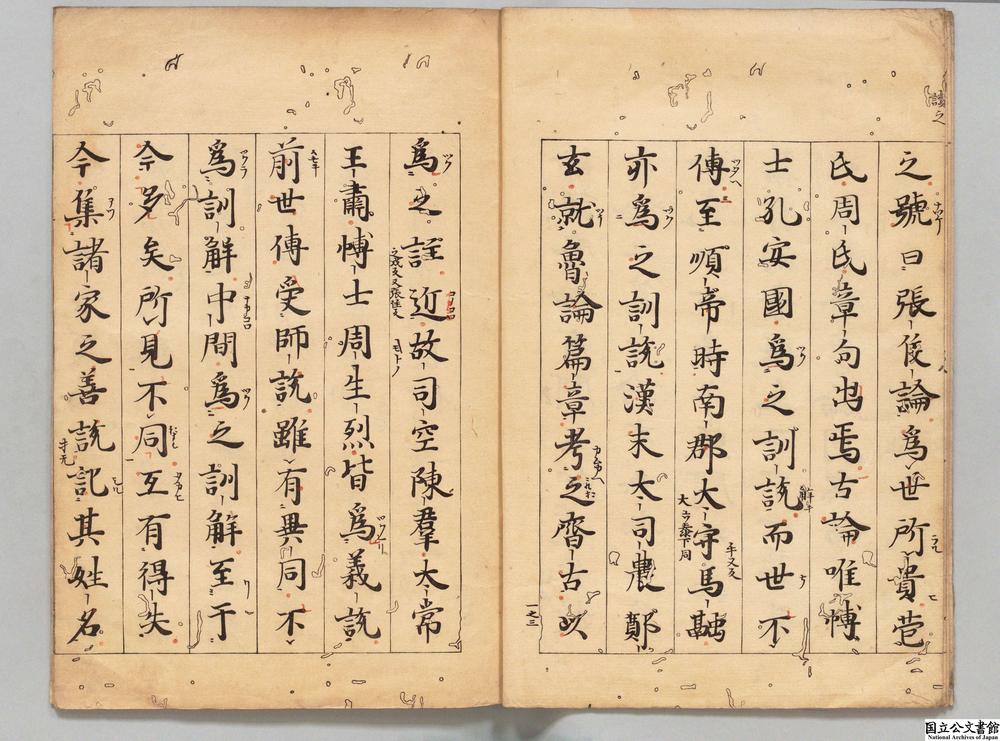 之號曰張侯論爲世所貴苞
氏周氏章句出焉古論唯博
士孔安國爲之訓說而世不
傳至順帝時南郡大守馬融
亦爲之訓說漢末大司農鄭
玄就魯論篇章考之齊古以
爲之註近故司空陳羣太常
王肅博士周生烈皆爲義說
前世傳受師說雖有異同不
爲訓解中間爲之訓解至于
今多矣所見不同互有得失
今集諸家之善說記其姓名
一之三
国立公文書館
National Archives of Japan